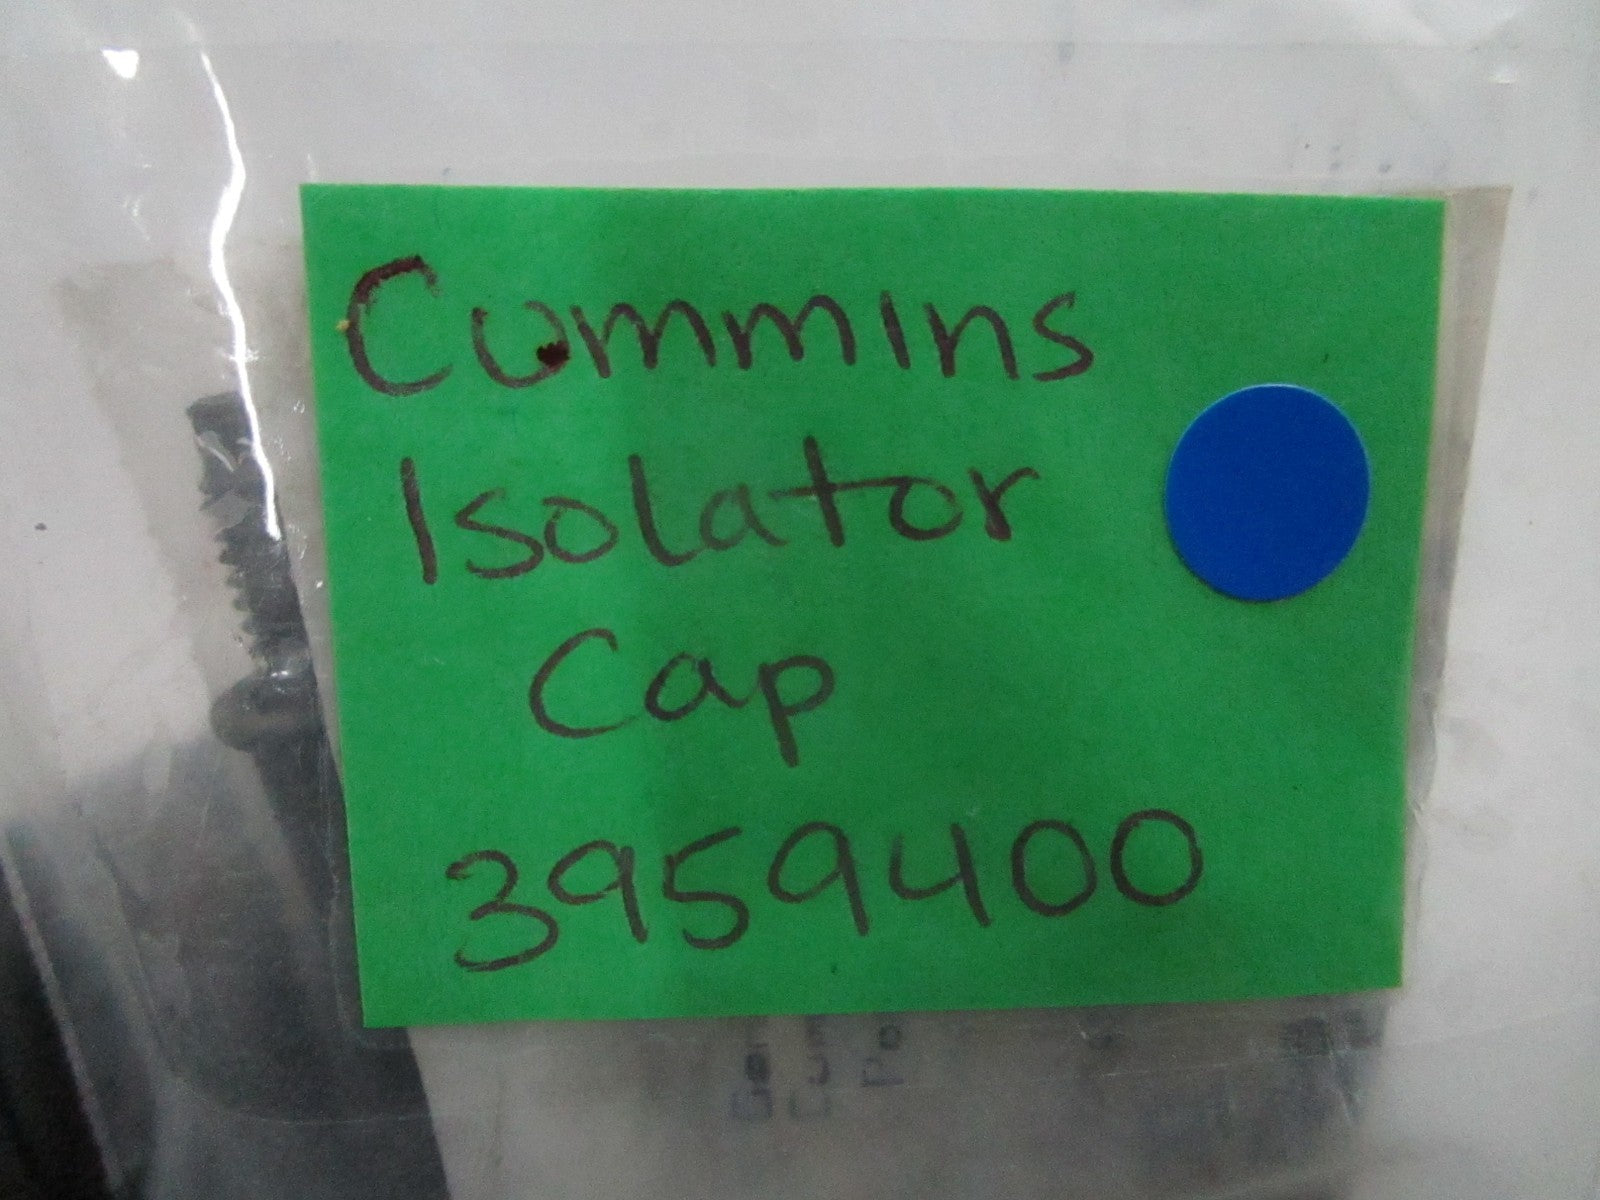 Cummins
Isolator
Cap
3959400